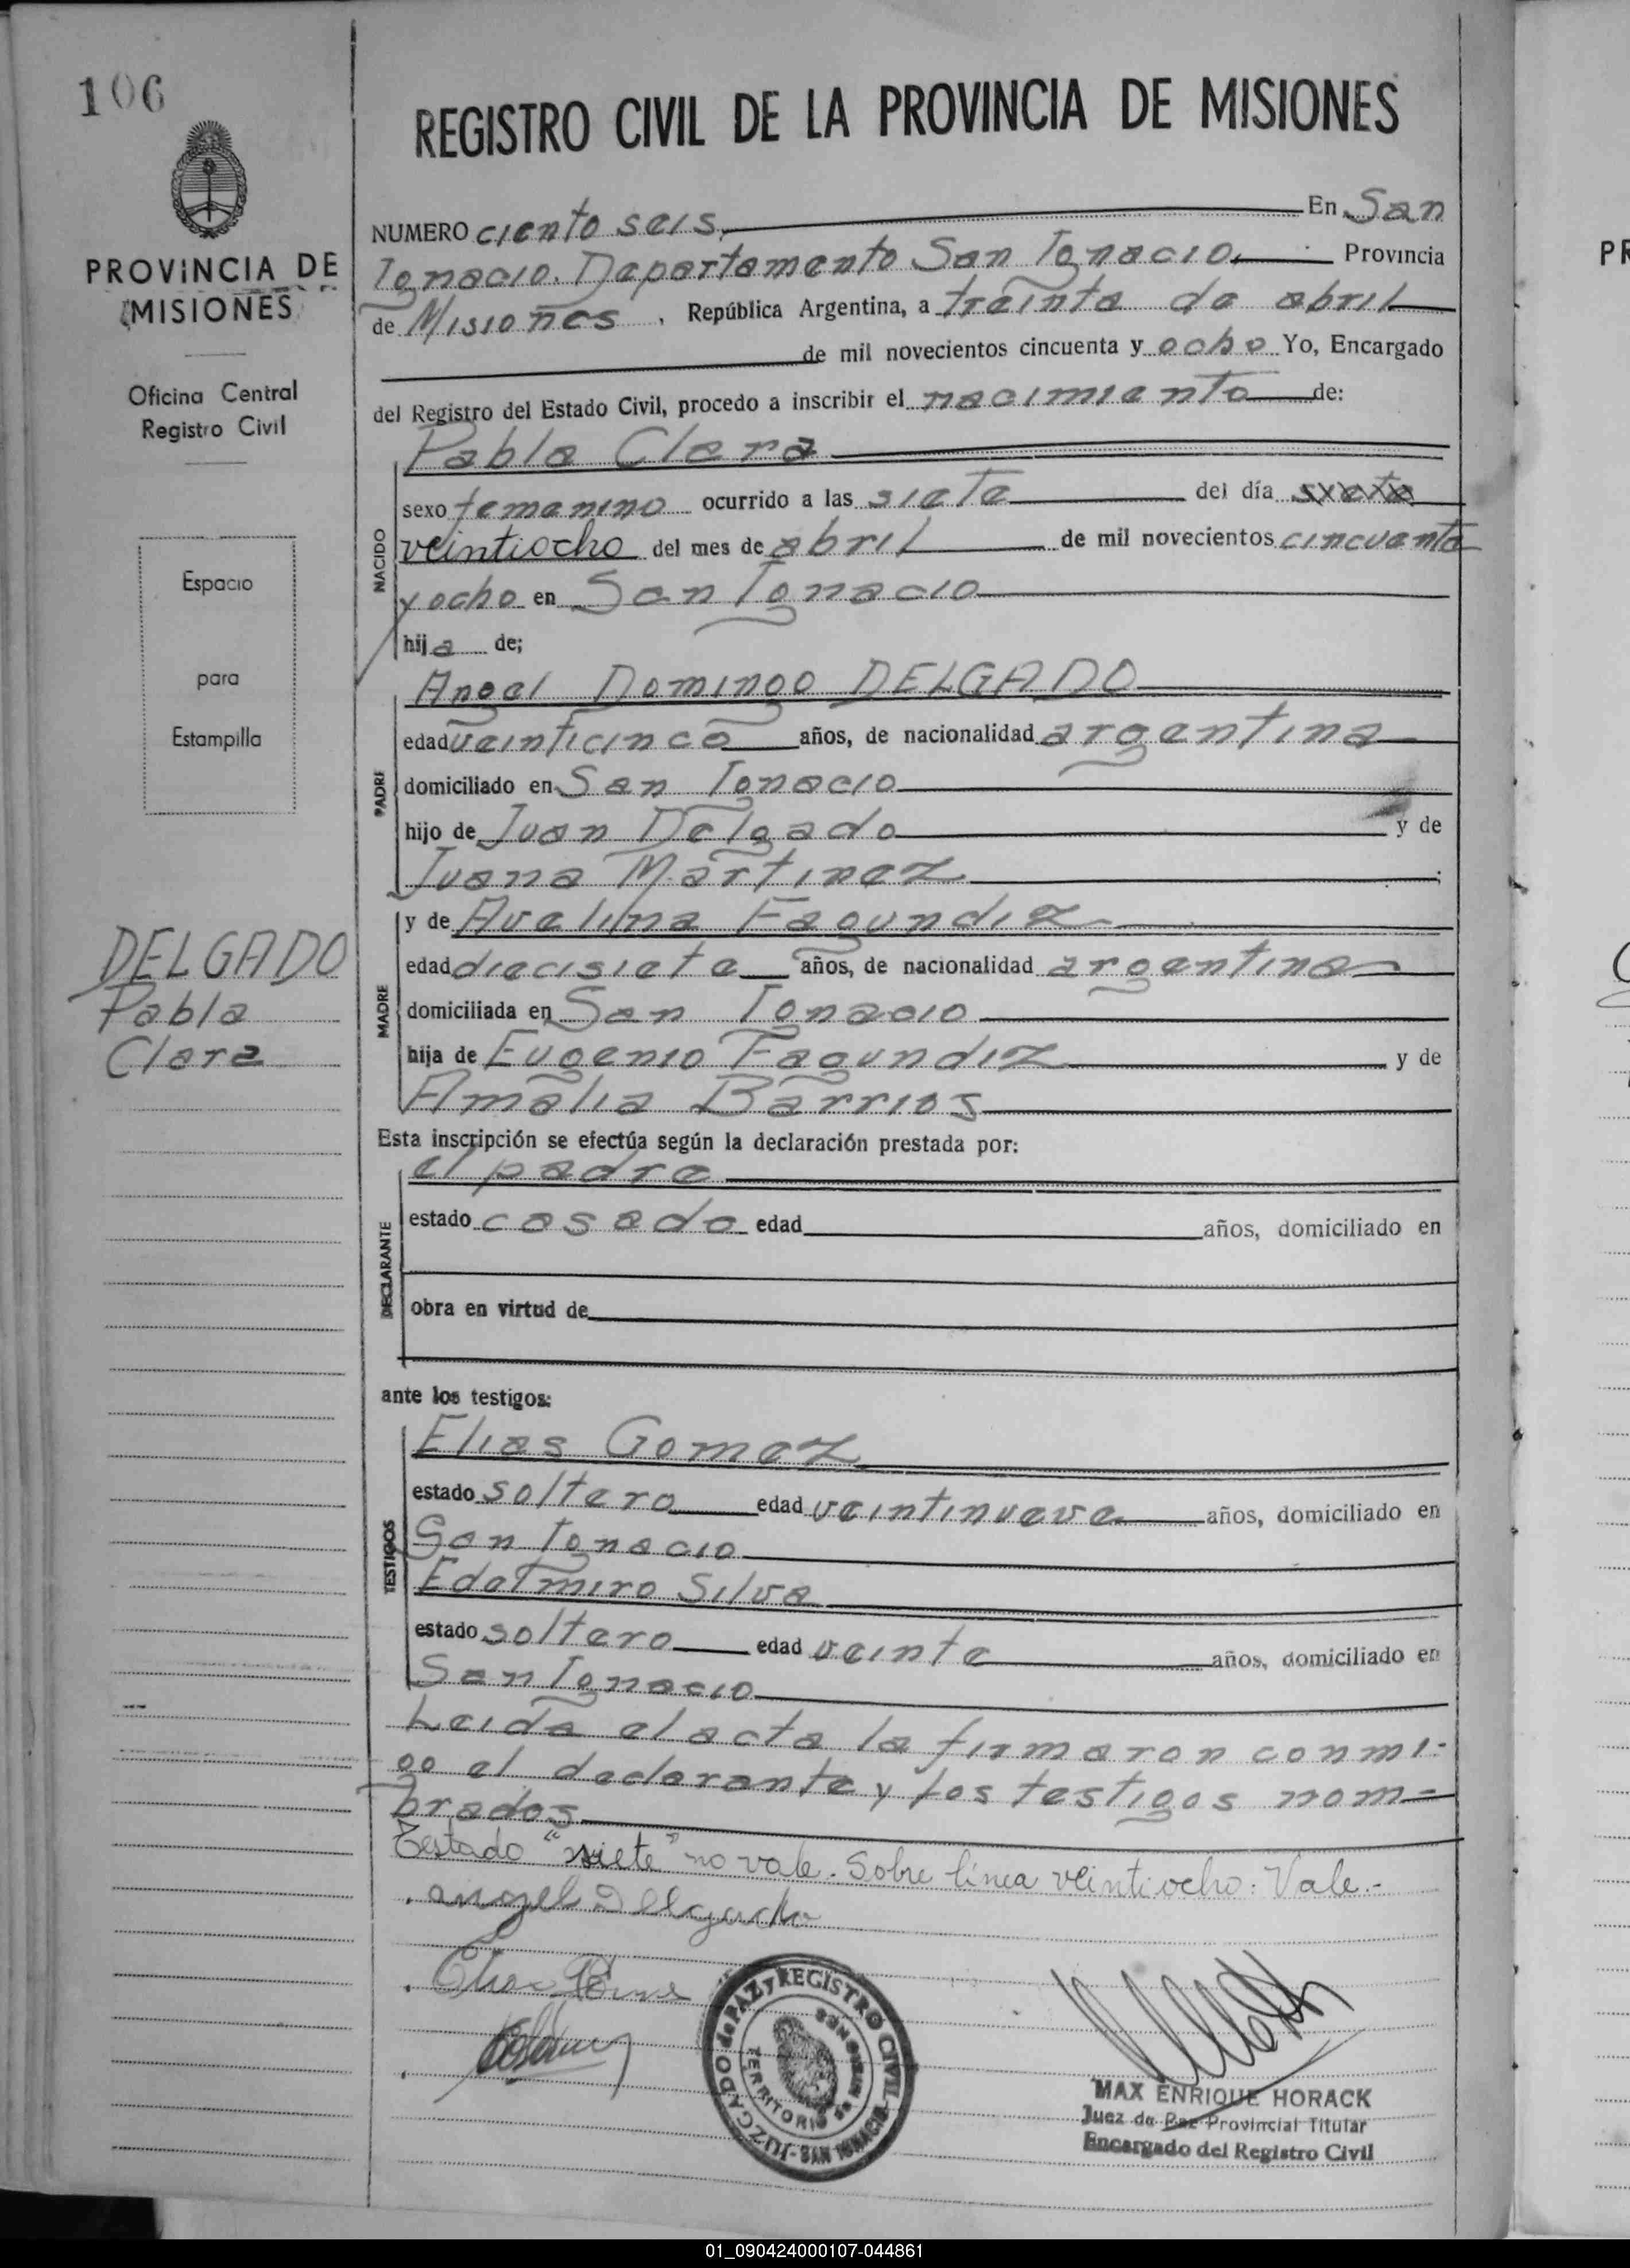 106
PROVINCIA DE
MISIONES
Oficina Central
Registro Civil
Espacio
para
Estampilla
DELGADO
Pabla
Clara
REGISTRO CIVIL DE LA PROVINCIA DE MISIONES
NUMERO ciento seis. En San
Ignacio. Departamento San Ignacio. Provincia
de Misiones, República Argentina, a treinta de abril
de mil novecientos cincuenta y ocho Yo, Encargado
del Registro del Estado Civil, procedo a inscribir el nacimiento de:
NACIDO
Pabla Clara
sexo femenino ocurrido a las siete del día siete
veintiocho del mes de abril de mil novecientos cincuenta
y ocho en San Ignacio
hija de;
PADRE
Angel Domingo DELGADO
edad veinticinco años, de nacionalidad argentina
domiciliado en San Ignacio
hijo de Juan Delgado y de
Juana Martinez ;
MADRE
y de Avelina Fagundiz
edad diecisiete años, de nacionalidad argentina
domiciliada en San Ignacio
hija de Eugenio Fagundiz y de
Amalia Barrios
Esta inscripción se efectúa según la declaración prestada por:
DECLARANTE
el padre
estado casado edad años, domiciliado en
obra en virtud de
ante los testigos:
TESTIGOS
Elias Gomez
estado soltero edad veintinueve años, domiciliado en
San Ignacio
Edelmiro Silva
estado soltero edad veinte años, domiciliado en
San Ignacio
Leida el acta la firmaron conmi-
go el declarante y los testigos nom-
brados
Testado "siete" no vale. Sobre línea veintiocho: Vale.-
angel Delgado
JUZGADO de PAZ y REGISTRO CIVIL
TERRITORIO de MISIONES
SAN IGNACIO
MAX ENRIQUE HORACK
Juez de Paz Provincial Titular
Encargado del Registro Civil
01_090424000107-044861